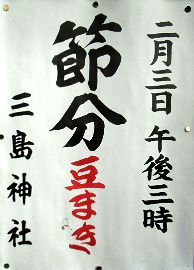 二月三日 午後三時
節分
豆まき
三島神社